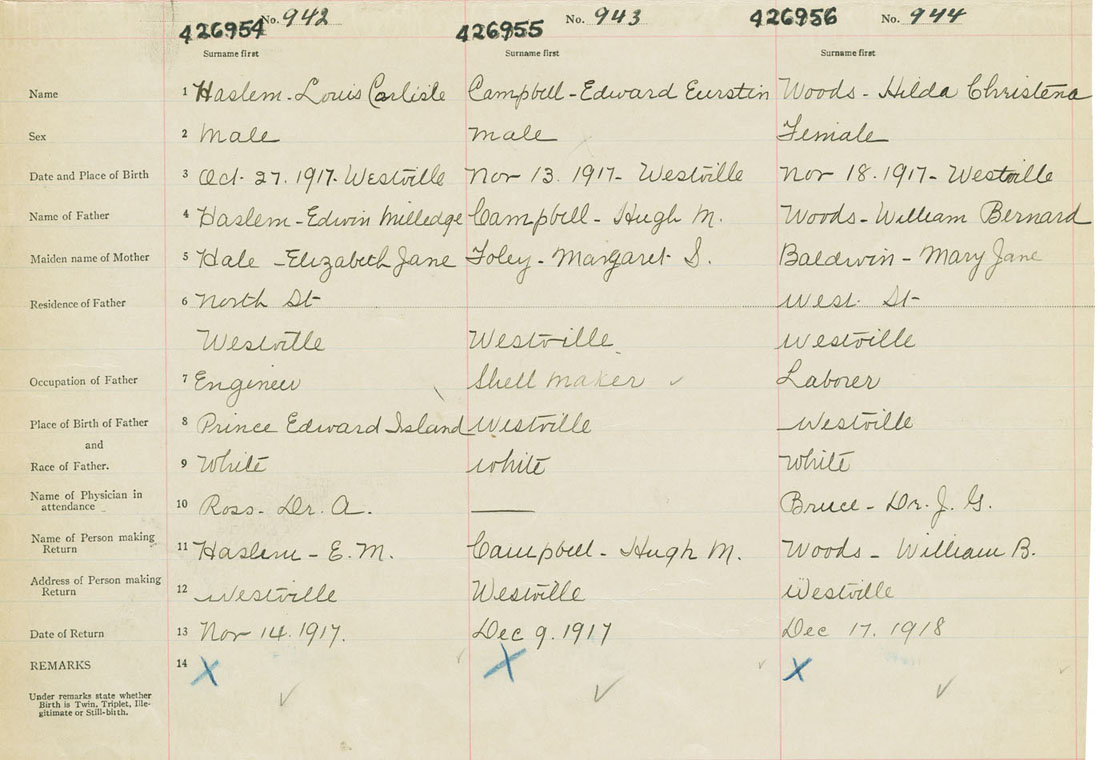 426954 No. 942 426955 No. 943 426956 No. 944
Surname first Surname first Surname first
Name 1 Haslem - Louis Carlisle Campbell - Edward Eurstin Woods - Hilda Christena
Sex 2 Male Male Female
Date and Place of Birth 3 Oct. 27. 1917. Westville Nov 13. 1917 - Westville Nov 18. 1917 - Westville
Name of Father 4 Haslem - Edwin Milledge Campbell - Hugh M. Woods - William Bernard
Maiden name of Mother 5 Hale - Elizabeth Jane Foley - Margaret S. Baldwin - Mary Jane
Residence of Father 6 North St West. St
Westville Westville Westville
Occupation of Father 7 Engineer Shell maker Laborer
Place of Birth of Father 8 Prince Edward Island Westville Westville
and
Race of Father. 9 White White White
Name of Physician in
attendance 10 Ross - Dr. A. — Bruce - Dr. J. G.
Name of Person making
Return 11 Haslem - E. M. Campbell - Hugh M. Woods - William B.
Address of Person making
Return 12 Westville Westville Westville
Date of Return 13 Nov 14. 1917. Dec 9. 1917 Dec 17. 1918
REMARKS 14 X X X
Under remarks state whether
Birth is Twin, Triplet, Ille-
gitimate or Still-birth.